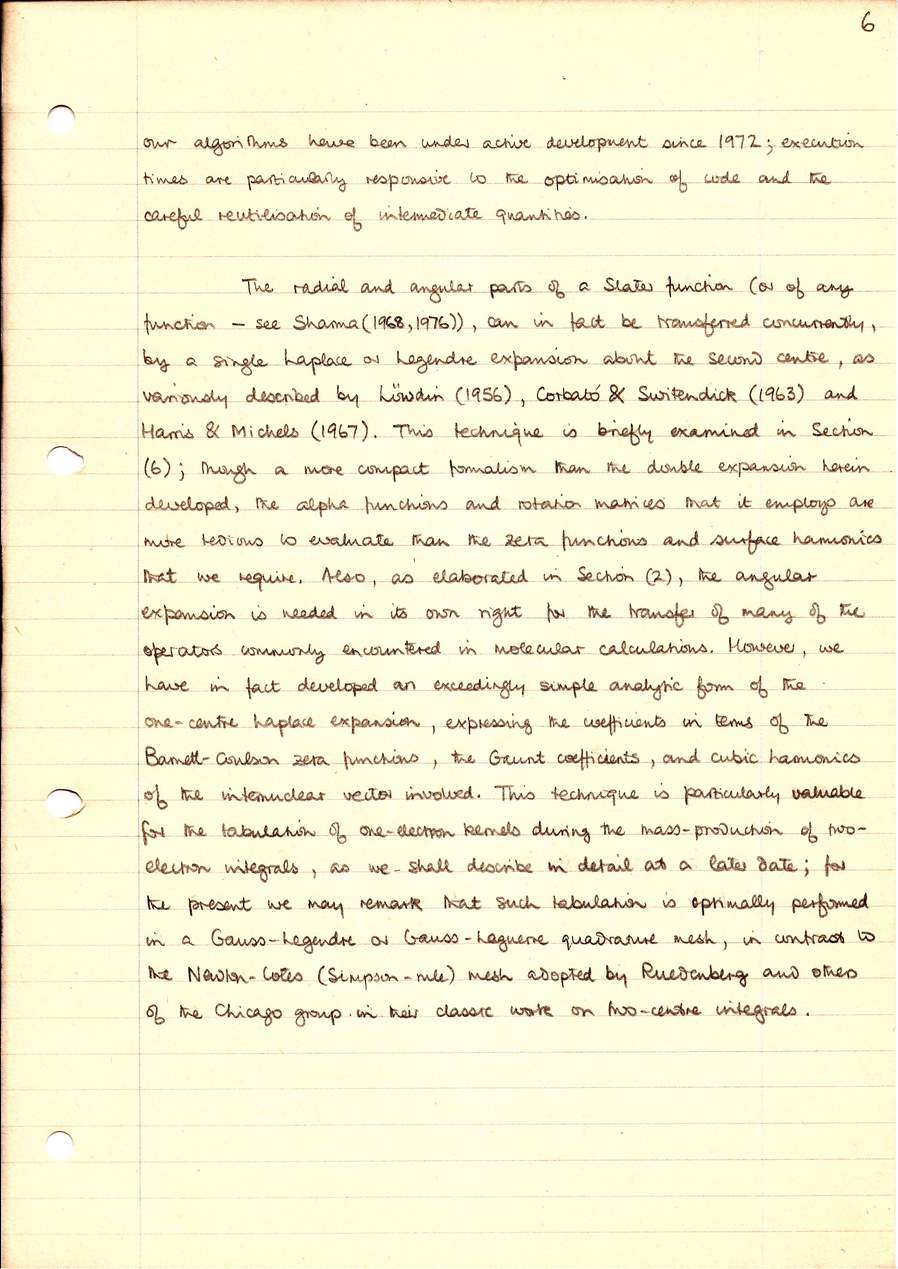 6
our algorithms have been under active development since 1972; execution
times are particularly responsive to the optimisation of code and the
careful reutilisation of intermediate quantities.
The radial and angular parts of a Slater function (or of any
function – see Sharma (1968, 1976)), can in fact be transferred concurrently,
by a single Laplace or Legendre expansion about the second centre, as
variously described by Löwdin (1956), Corbató & Switendick (1963) and
Harris & Michels (1967). This technique is briefly examined in Section
(6); though a more compact formalism than the double expansion herein
developed, the alpha functions and rotation matrices that it employs are
more tedious to evaluate than the zeta functions and surface harmonics
that we require. Also, as elaborated in Section (2), the angular
expansion is needed in its own right for the transfer of many of the
operators commonly encountered in molecular calculations. However, we
have in fact developed an exceedingly simple analytic form of the
one-centre Laplace expansion, expressing the coefficients in terms of the
Barnett-Coulson zeta functions, the Gaunt coefficients, and cubic harmonics
of the internuclear vector involved. This technique is particularly valuable
for the tabulation of one-electron kernels during the mass-production of two-
electron integrals, as we shall describe in detail at a later date; for
the present we may remark that such tabulation is optimally performed
in a Gauss-Legendre or Gauss-Laguerre quadrature mesh, in contrast to
the Newton-Cotes (Simpson-rule) mesh adopted by Ruedenberg and others
of the Chicago group in their classic work on two-centre integrals.